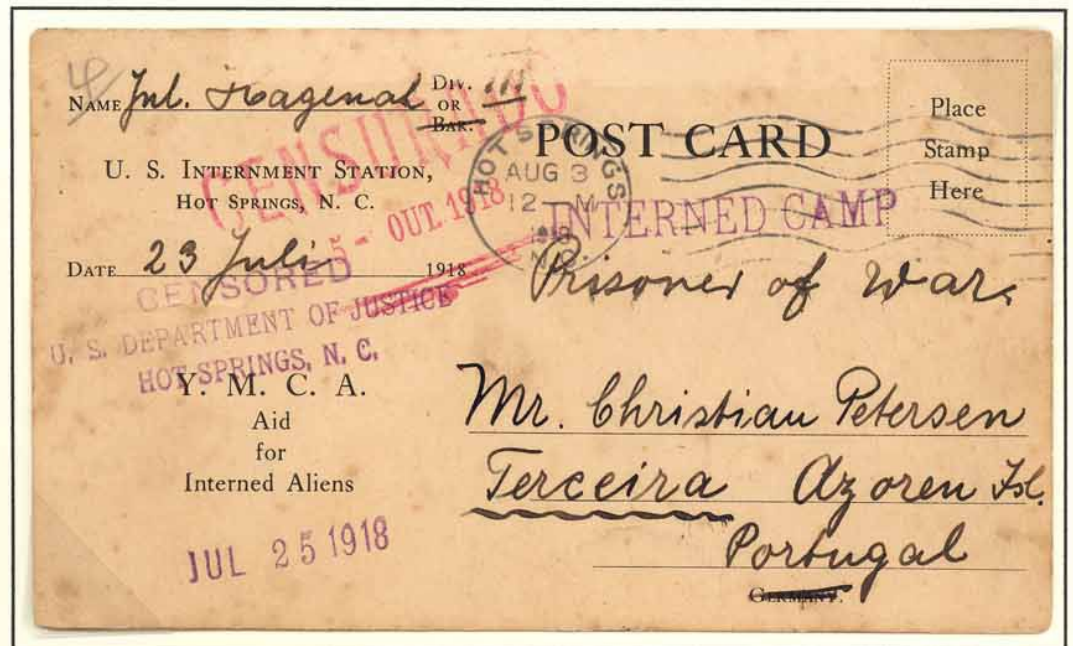 NAME Jul. Hagenah DIV. OR BAR. III
U. S. INTERNMENT STATION,
HOT SPRINGS, N. C.
DATE 23 Juli 1918
CENSURADO
5 - OUT. 1918
CENSORED
U. S. DEPARTMENT OF JUSTICE
HOT SPRINGS, N. C.
Y. M. C. A.
Aid
for
Interned Aliens
JUL 25 1918
POST CARD
Place
Stamp
Here
HOT SPRINGS
AUG 3
12 - M
1918
N.C.
INTERNED CAMP
Prisoner of War.
Mr. Christian Petersen
Terceira Azoren Isl.
Portugal
GERMANY.